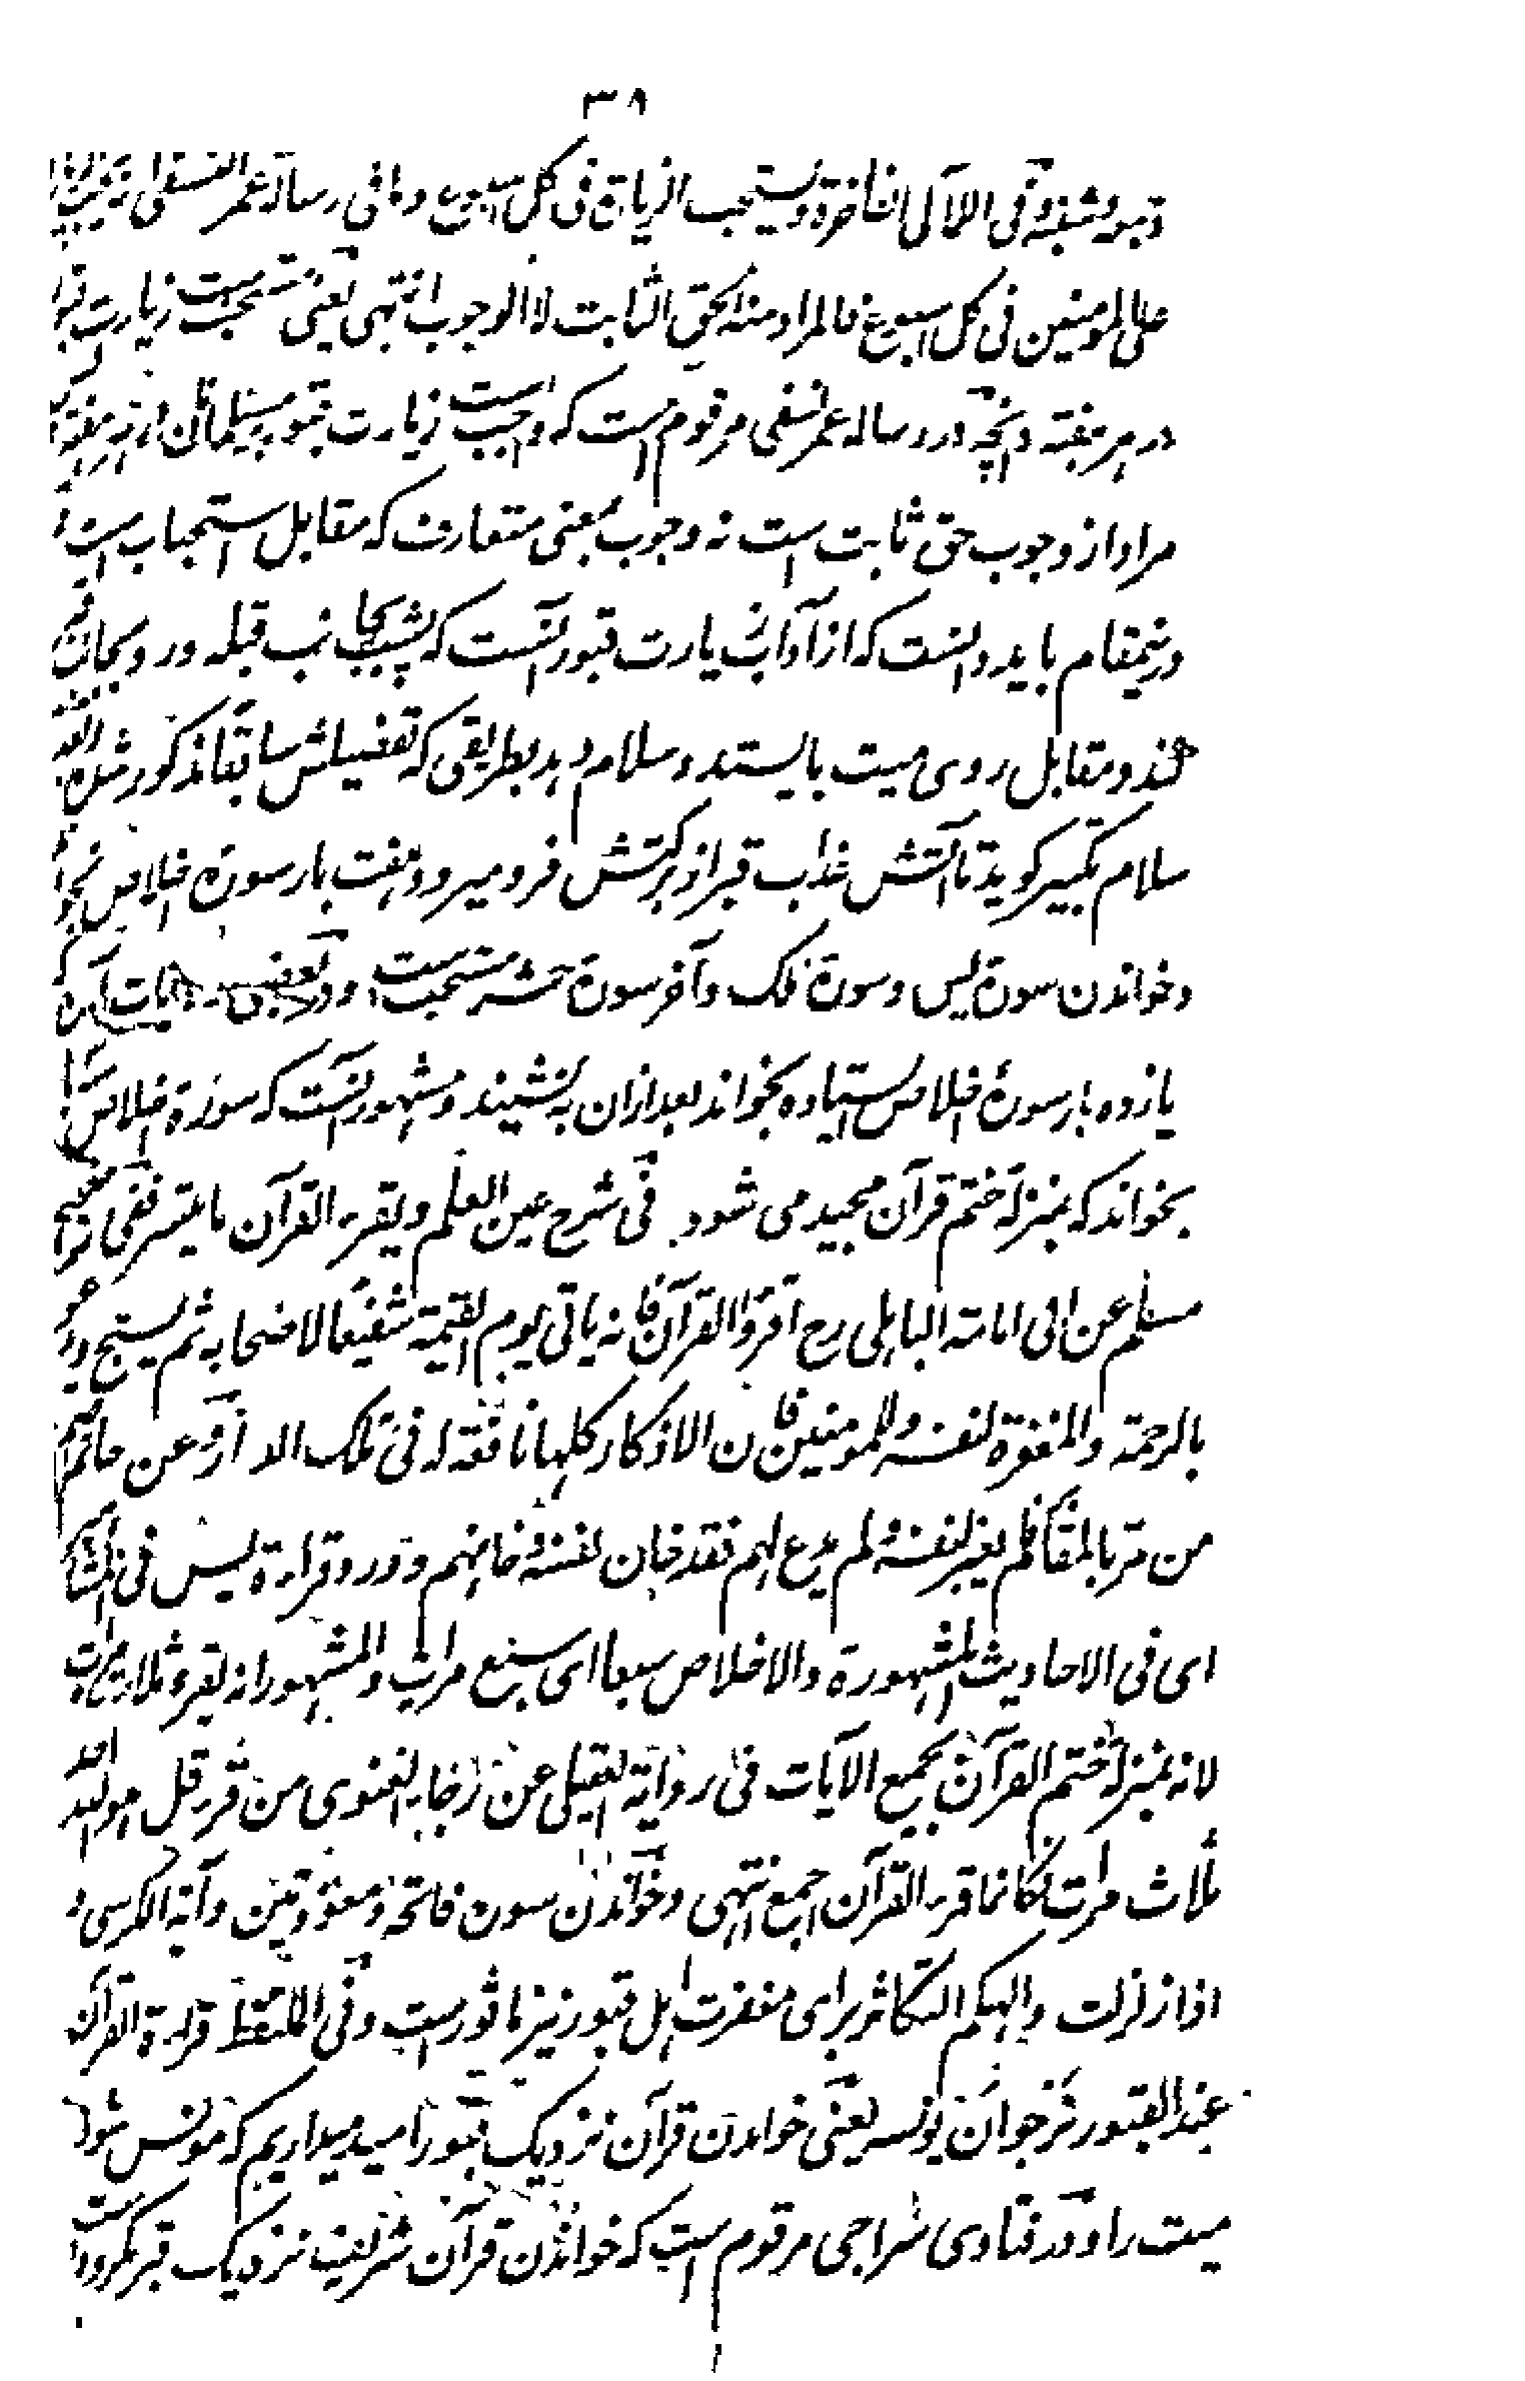 ٣٨
وفی اللآلی الفاخرة ویستحب الزیارة فی کل اسبوع وما فی رسالة عمر النسفی
علی المومنین فی کل اسبوع فالمراد منه الحق الثابت لا الوجوب انتهی یعنی مستحب ست زیارت قبور
در هر هفته و انچه در رساله عمر نسفی مرقوم است که واجب است زیارت قبور مسلمانان در هر هفته
مراد از وجوب حق ثابت است نه وجوب بمعنی متعارف که مقابل استحباب است
درینمقام باید دانست که از آداب زیارت قبور آنست که پشت بجانب قبله و رو بجانب قبر
کند و مقابل روی میت بایستد و سلام دهد بطریقی که تفصیلش سابقا مذکور شد و بعد
سلام تکبیر گوید تا آتش عذاب قبر از برکتش فرو میرود و هفت بار سورۀ اخلاص بخواند
و خواندن سورۀ یس و سورۀ ملک و آخر سورۀ حشر مستحب ست و در بعضی روایات آمده که
یازده بار سورۀ اخلاص استاده بخواند بعد ازان به نشیند و مشهور آنست که سورۀ اخلاص سه بار
بخواند که بمنزلۀ ختم قرآن مجید می شود فی شرح عین العلم ویقرء القرآن ما تیسر ففی صحیح
مسلم عن ابی امامة الباهلی رح اقرؤا القرآن فانه یاتی یوم القیمة شفیعا لاصحابه ثم یسبح ویدعو
بالرحمة والمغفرة لنفسه وللمومنین فان الاذکار کلها نافعة له فی تلک الدار وعن حاتم
من مر بالمقابر فلم یعتبر لنفسه ولم یدع لهم فقد خان نفسه وخانهم وورد قراءة یس فی المشاهیر
ای فی الاحادیث المشهورة والاخلاص سبعا ای سبع مرات والمشهور انه یقرء ثلاث مرات
لانه بمنزلة ختم القرآن بجمیع الآیات فی روایة العقیلی عن رجاء الغنوی من قرء قل هو الله احد
ثلاث مرات فکانما قرء القرآن اجمع انتهی وخواندن سورۀ فاتحه و معوذتین و آیة الکرسی و
اذا زلزلت و الهکم التکاثر برای مغفرت اهل قبور نیز ماثور است وفی الملتقط قراءة القرآن
عند القبور نرجو ان یونسه یعنی خواندن قرآن نزدیک قبور امید میداریم که مونس شود
میت را و در فتاوی سراجی مرقوم است که خواندن قرآن شریف نزدیک قبر مکروه است